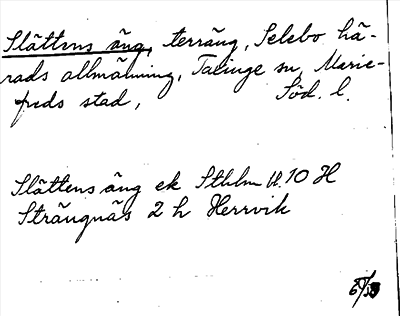 Slättens äng, terräng, Selebo hä-
rads allmänning, Taxinge sn, Marie-
freds stad, Söd. l.
Slättens äng ek Sthlm U.10 H
Strängnäs 2 h Herrvik